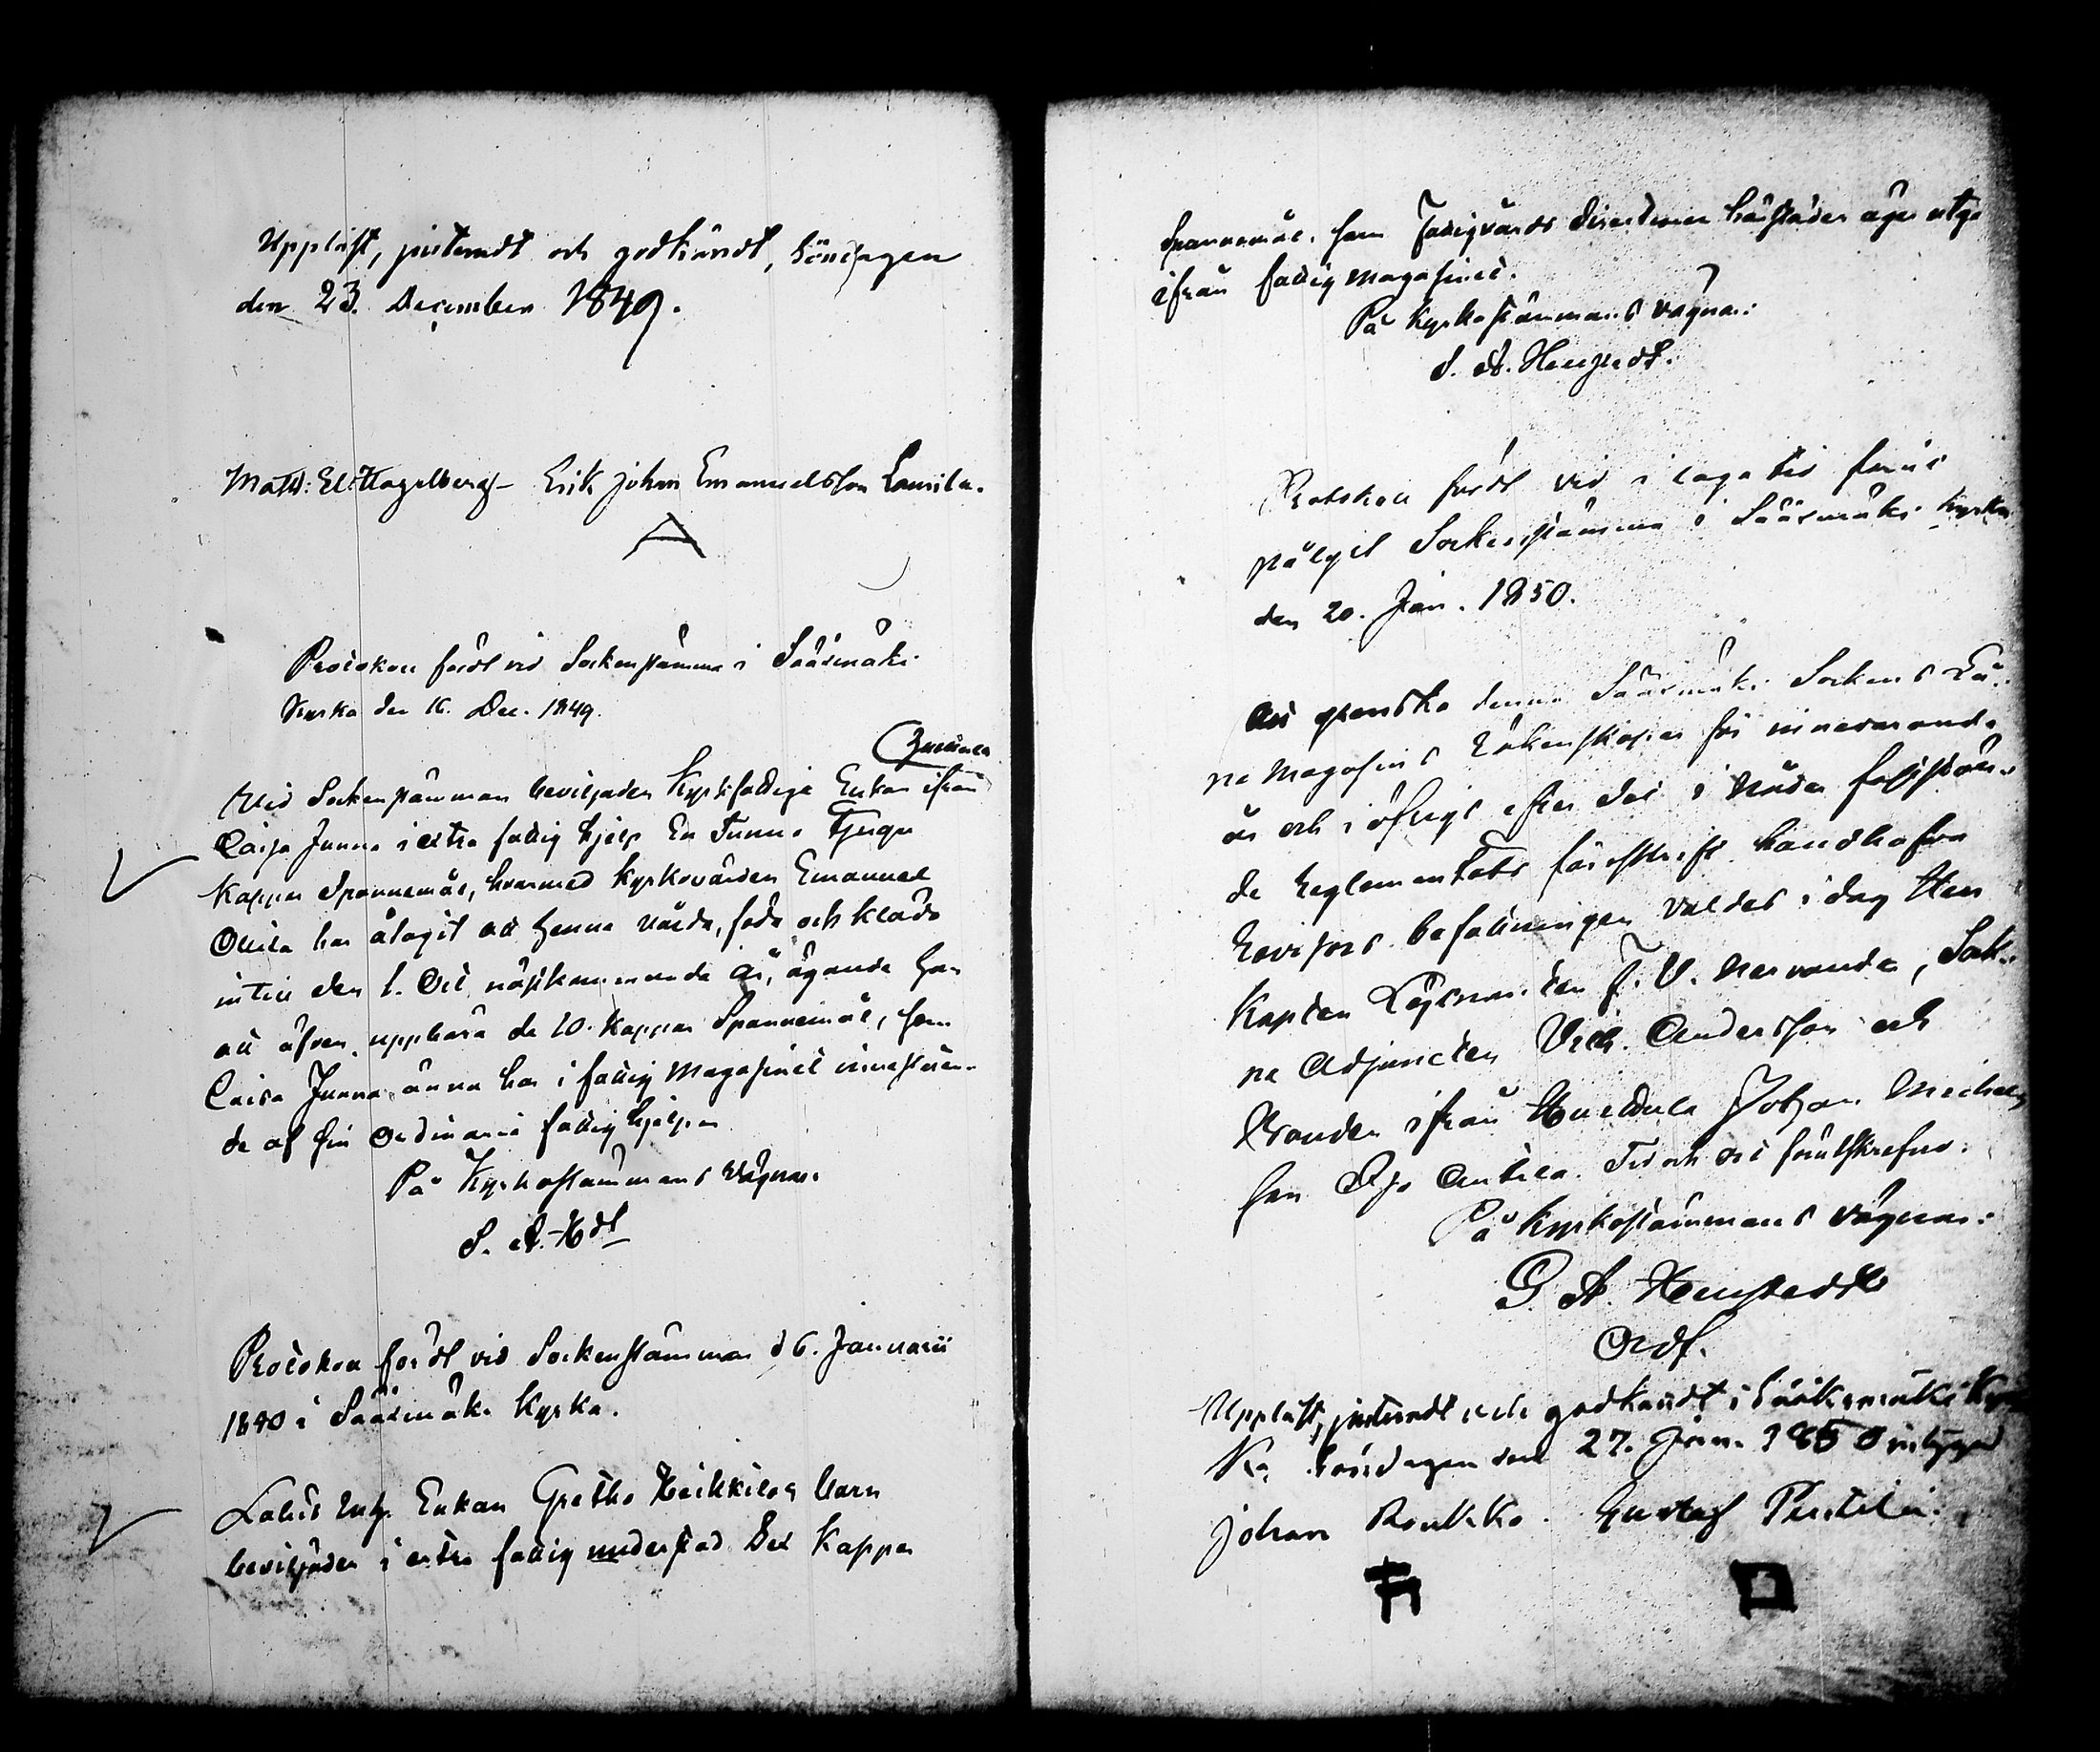 Uppläst, justeradt och godkändt, Söndagen
den 23. December 1849.
Matts: El: Hagelberg – Erik Johan Emanuelsson Laurila.
Protokoll fördt vid Sockenstämma i Sääxmäki
Kyrka den 16. Dec. 1849.
Vid Sockenstämman beviljades Kyrkfattiga Enkan ifrån
Caisa Juuna i extra fattig hjelp En Tunna Tjugu
Kappar Spannemål, hvarmed Kyrkovärden Emanuel
Ollila har åtagit att henne vårda, föda och kläda
intill den 1. Oct. nästkommande år, ägande han
att äfven uppbära de 20. Kappar Spannemål, som
Caisa Juuna ännu har i fattig Magasinet innestående
de af sin Ordinarie fattig hjelpen
På Kyrkostämmans vägnar.
G. A. Hdt
Protokoll fördt vid Sockenstämman d 6. Januarii
1840 i Sääxmäki Kyrka.
Enkan Gretha Heikkilas barn
beviljades i extra fattig understöd Sex Kappar
Spannemål, som Fattigvårds Directionen härstädes äger utge
ifrån fattig magasinet.
På Kyrkostämmans vägnar:
G. A. Hengstedt.
Protokoll fördt vid i laga tid förut
pålyst Sockenstämma i Sääxmäki Kyrka
den 20. Jan. 1850.
Att granska denna Sääxmäki Sockens Lå-
ne Magasins Räkenskaper för innevarande
år och i öfrigt efter det i Nåder fastställ-
de Reglementets föreskrift handhafva
Revisors befattningen valdes i dag Herr
Kapten Löjtnanten F. V. Nervander, Sock-
ne Adjuncten Vilh. Andersson och
Bonden ifrån Huittula Johan Michels
son Ojo Antila. Tid och ort förutskrefne.
På Kyrkostämmans vägnar:
G. A. Hengstedt
Ordf.
Uppläst, justeradt och godkändt i Sääksmäki Kyr
ka Söndagen den 27. Jan. 1850 intyga
Johan Roukko. Gustaf Penttilä.